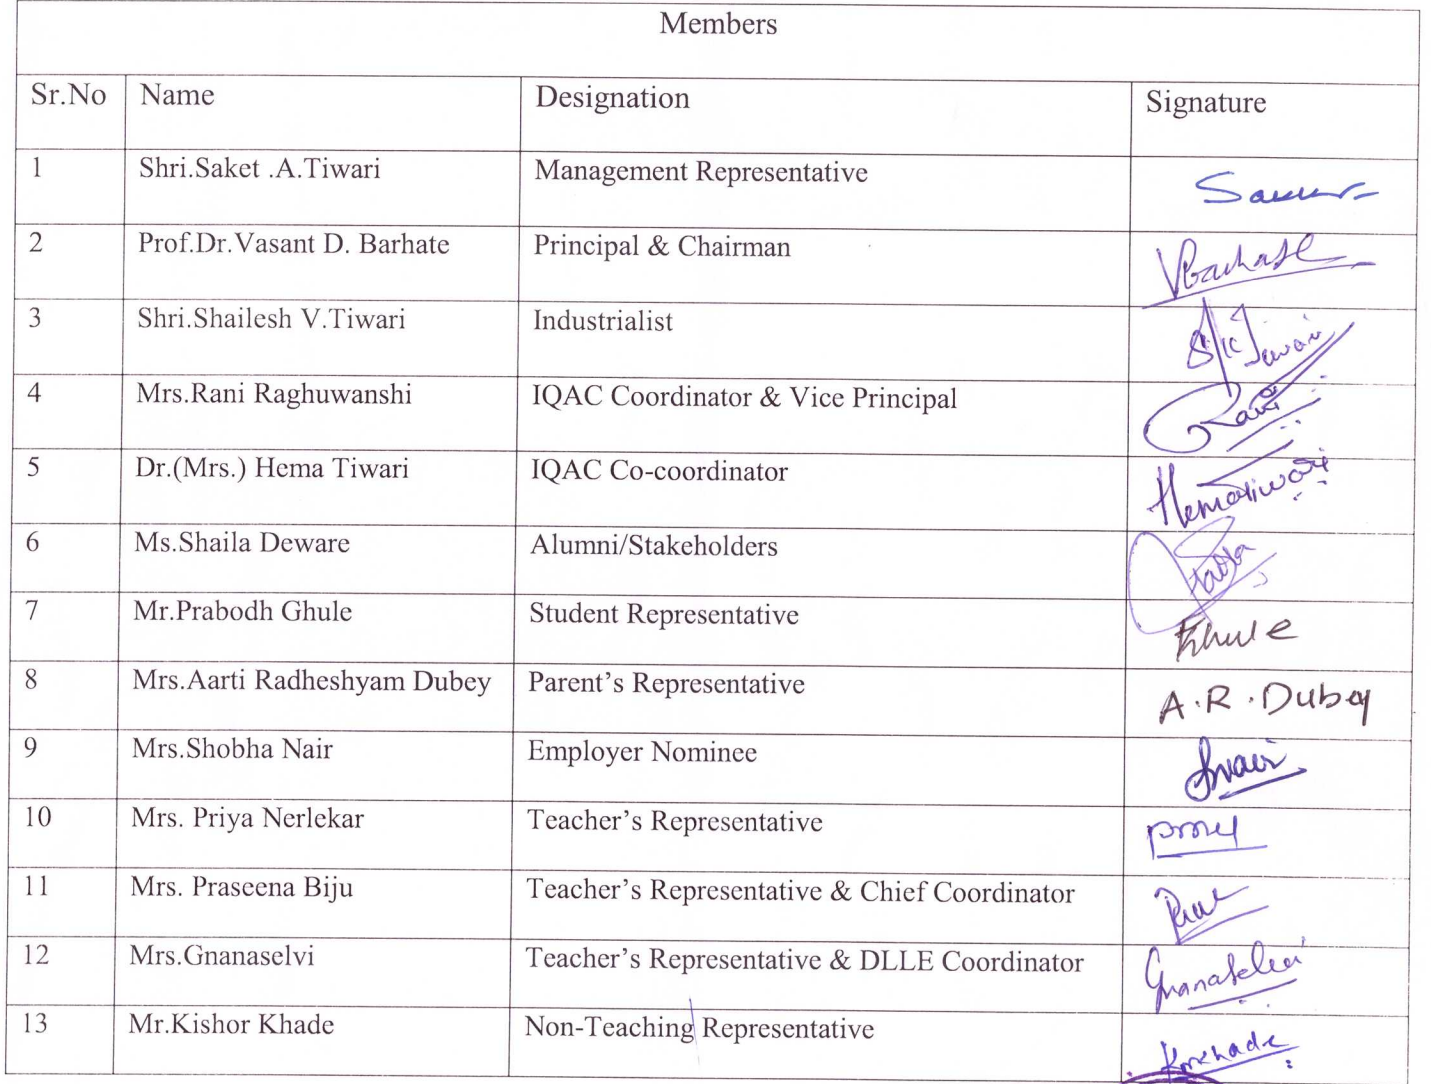 Members
Sr.No Name Designation Signature
1 Shri.Saket .A.Tiwari Management Representative
2 Prof.Dr.Vasant D. Barhate Principal & Chairman VBarhate
3 Shri.Shailesh V.Tiwari Industrialist Tiwari
4 Mrs.Rani Raghuwanshi IQAC Coordinator & Vice Principal Rani
5 Dr.(Mrs.) Hema Tiwari IQAC Co-coordinator Hematiwari
6 Ms.Shaila Deware Alumni/Stakeholders
7 Mr.Prabodh Ghule Student Representative Ghule
8 Mrs.Aarti Radheshyam Dubey Parent's Representative A.R.Dubey
9 Mrs.Shobha Nair Employer Nominee Snair
10 Mrs. Priya Nerlekar Teacher's Representative
11 Mrs. Praseena Biju Teacher's Representative & Chief Coordinator
12 Mrs.Gnanaselvi Teacher's Representative & DLLE Coordinator Gnanaselvi
13 Mr.Kishor Khade Non-Teaching Representative Kmkhade